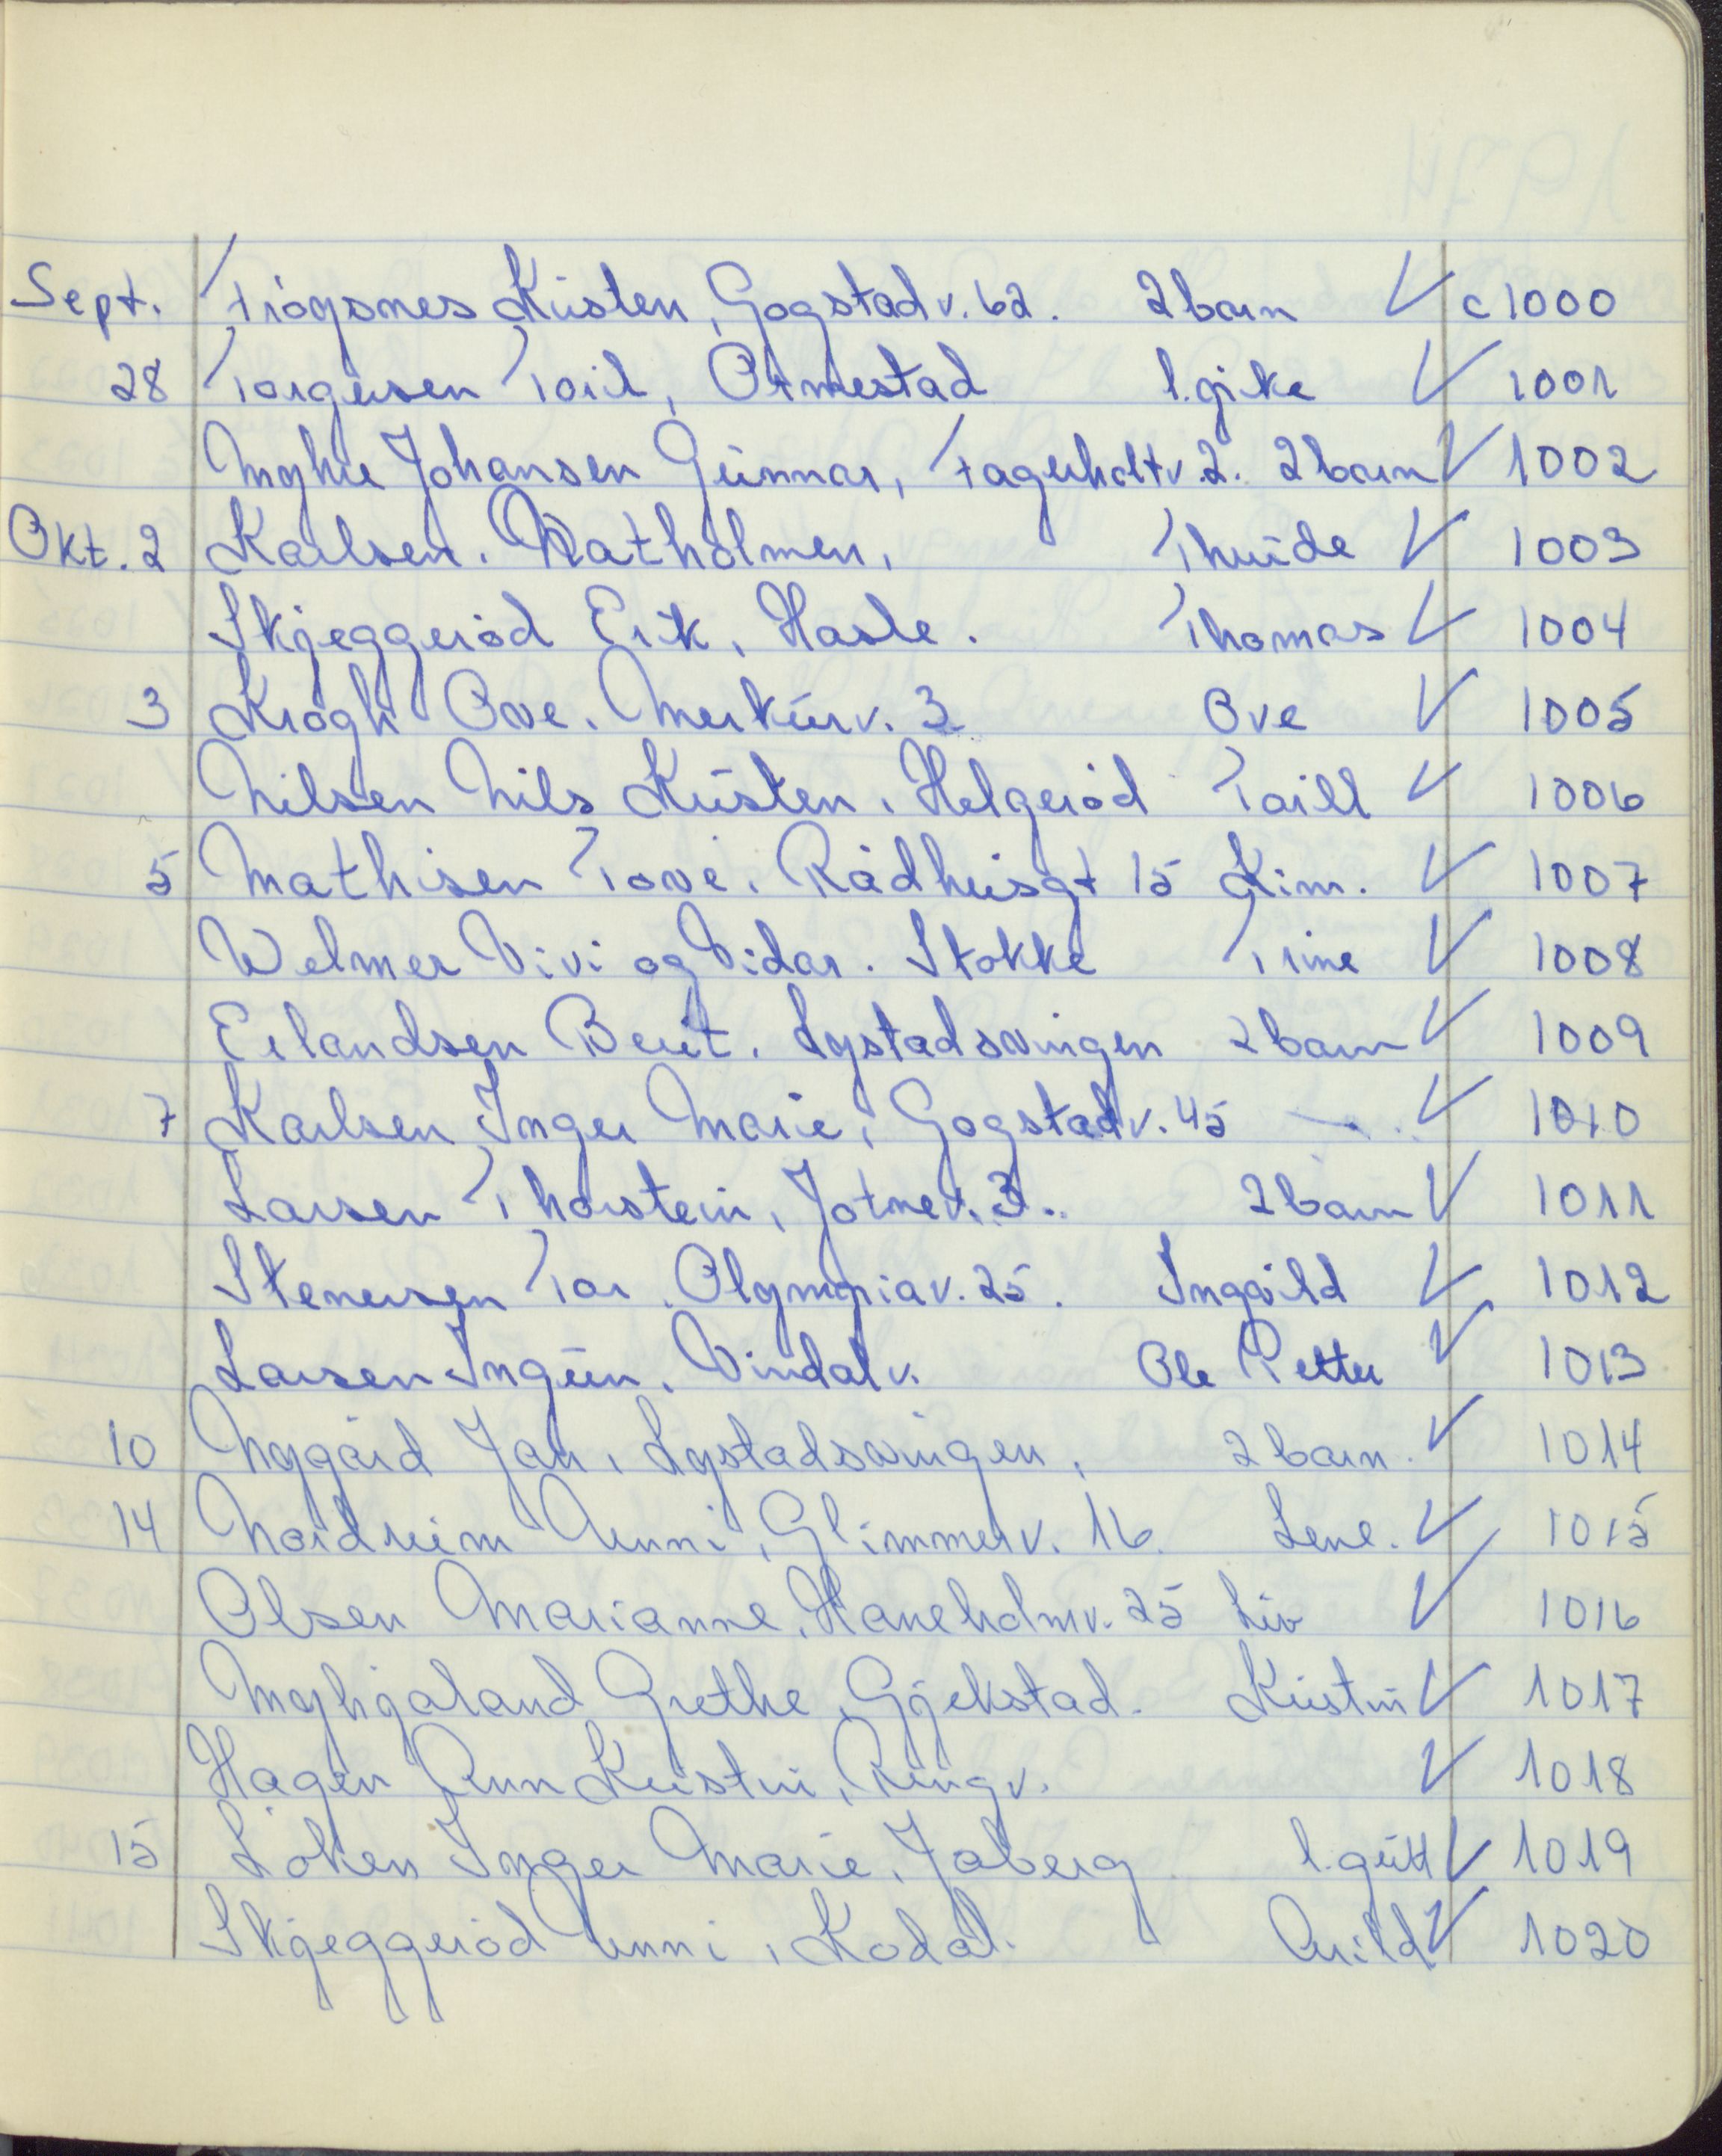 Sept. Frøysnes Kirsten, Gogstadv. 62. 2 barn ✓ c 1000
28 Torgersen Toril, Ormestad 1. pike ✓ 1001
Myhre Johansen Gunnar, Fagerholtv. 2. 2 barn ✓ 1002
Okt. 2 Karlsen. Natholmen, Thuride ✓ 1003
Skjeggerød Erik, Hasle. Thomas ✓ 1004
3 Krogh Ove. Merkurv. 3 Ove ✓ 1005
Nilsen Nils Kirsten, Helgerød Torill ✓ 1006
5 Mathisen Tove. Rådhusgt 15 Kim. ✓ 1007
Welmer Vivi og Vidar. Stokke Trine ✓ 1008
Erlandsen Berit. Lystadsvingen 2 barn ✓ 1009
7 Karlsen Inger Marie, Gogstadv. 45 ✓ 1010
Larsen Thorstein, Jotnev. 3. 2 barn ✓ 1011
Stenersen Tor. Olympiav. 25. Ingvild ✓ 1012
Larsen Ingunn. Vindalv. Ole Petter ✓ 1013
10 Nygård Jan, Lystadsvingen, 2 barn. ✓ 1014
14 Nordreim Unni, Glimmerv. 16. Lene. ✓ 1015
Olsen Marianne, Haneholmv. 25 Liv ✓ 1016
Myhjaland Grethe, Gjekstad. Kirstin ✓ 1017
Hagen Ann Kristin, Ringv. ✓ 1018
15 Løken Inger Marie, Jåberg 1. gutt ✓ 1019
Skjeggerød Unni, Kodal. Arild ✓ 1020